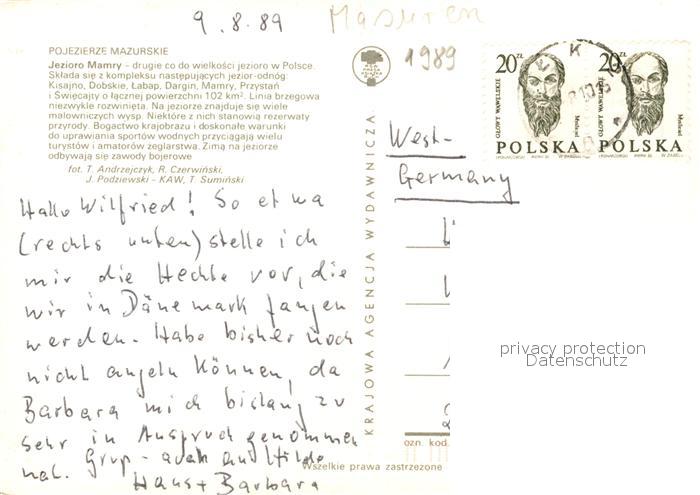 9.8.89 Masuren
1989
POJEZIERZE MAZURSKIE
Jezioro Mamry – drugie co do wielkości jezioro w Polsce.
Składa się z kompleksu następujących jezior-odnóg:
Kisajno, Dobskie, Łabap, Dargin, Mamry, Przystań
i Święcajty o łącznej powierzchni 102 km². Linia brzegowa
niezwykle rozwinięta. Na jeziorze znajduje się wiele
malowniczych wysp. Niektóre z nich stanowią rezerwaty
przyrody. Bogactwo krajobrazu i doskonałe warunki
do uprawiania sportów wodnych przyciągają wielu
turystów i amatorów żeglarstwa. Zimą na jeziorze
odbywają się zawody bojerowe
fot. T. Andrzejczyk, R. Czerwiński,
J. Podziewski – KAW, T. Sumiński
Hallo Wilfried! So etwa
(rechts unten) stelle ich
mir die Hechte vor, die
wir in Dänemark fangen
werden. Habe bisher noch
nicht angeln können, da
Barbara mich bislang zu
sehr in Anspruch genommen
hat. Gruß – auch an Hilde
Hans + Barbara
KRAJOWA AGENCJA WYDAWNICZA
20 zł
GŁOWY WAWELSKIE
POLSKA
20 zł
GŁOWY WAWELSKIE
POLSKA
West-
Germany
privacy protection
Datenschutz
ozn. kod.
Wszelkie prawa zastrzeżone